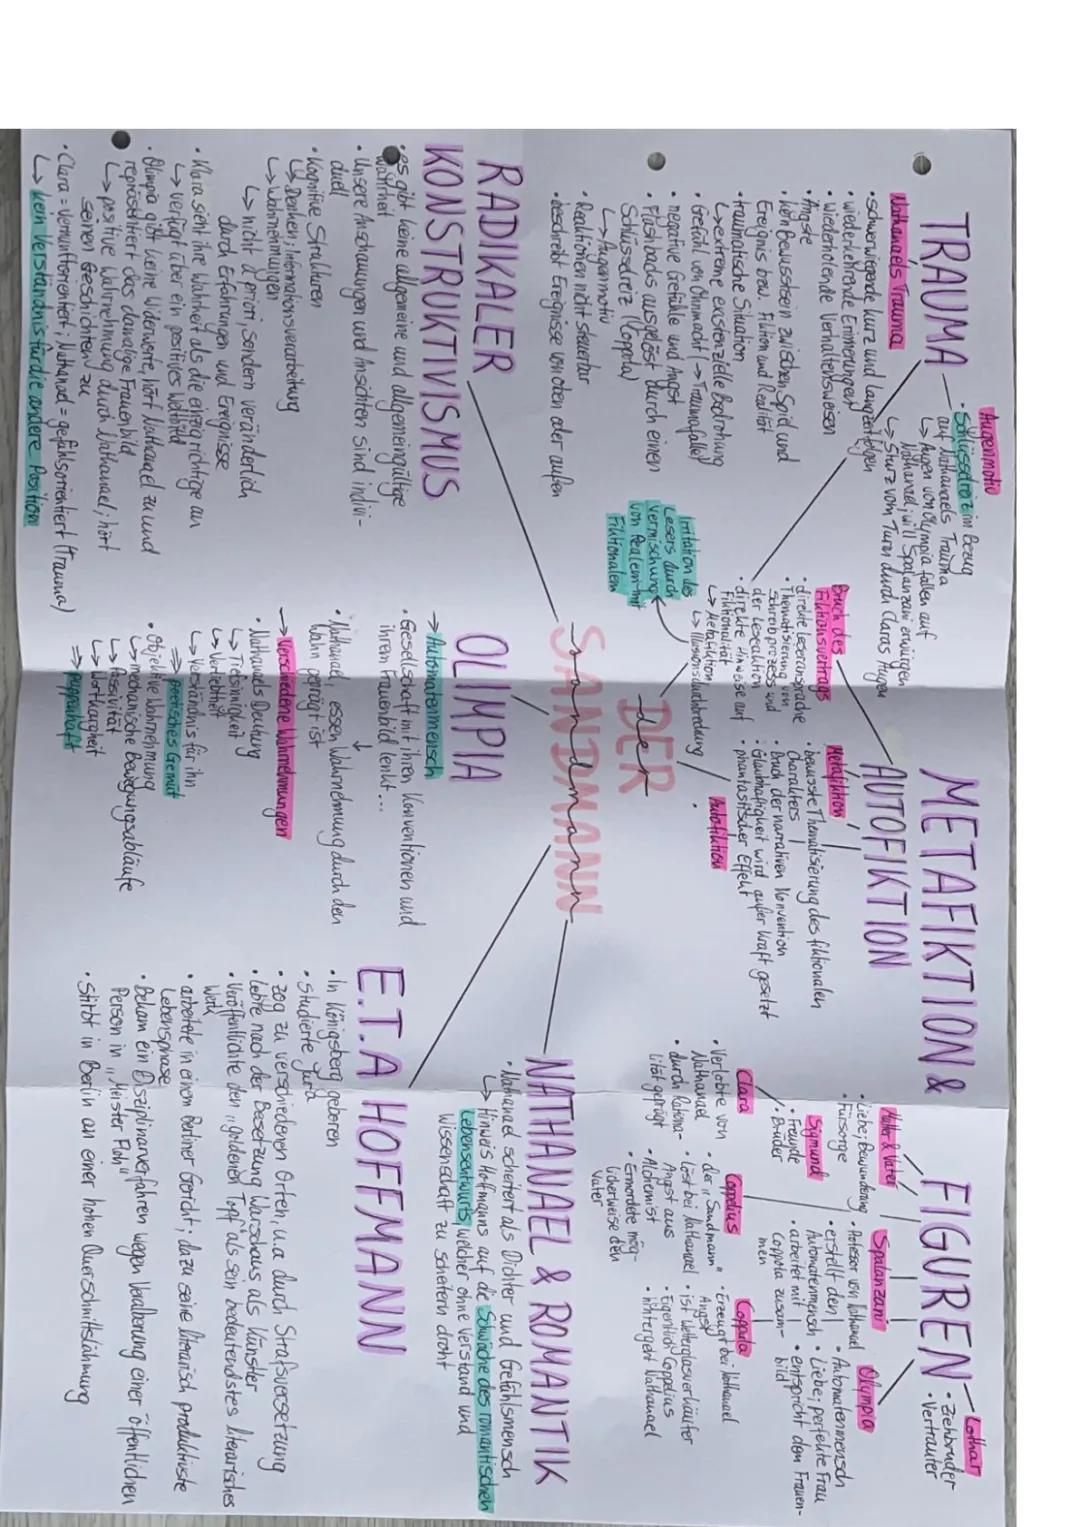 TRAUMA
Nathanaels Trauma
• schwerwiegende kurz und langzeitfolgen
• wiederkehrende Erinnerungen
• wiederholende Verhaltensweisen
• Ängste
• kein bewusstsein zwischen Spiel und
Ereignis bzw. Fiktion und Realität
• traumatische Situation
↳ extreme existenzielle Bedrohung
• Gefühl von Ohnmacht (→ Traumafalle)
• negative Gefühle und Angst
• Flashbacks ausgelöst durch einen
Schlüsselreiz (Coppola)
↳ Augenmotiv
• Reaktionen nicht steuerbar
• beschreibt Ereignisse von oben oder außen
Augenmotiv
• Schlüsselreiz im Bezug
auf Nathanaels Trauma
↳ Augen von Olympia fallen auf
Nathanael; will Spalanzani erwürgen
↳ Sturz vom Turm durch Claras Augen
METAFIKTION &
AUTOFIKTION
Bruch des
Fiktionsvertrags
• direkte Leseransprache
• Thematisierung von
Schreibprozess und
der Lesereaktion
• direkte Hinweise auf
Fiktionalität
↳ Metafiktion
↳ Illusionsdurchbrechung
Irritation des
Lesers durch
Vermischung
von Realem mit
Fiktionalem
Metafiktion
• bewusste Thematisierung des fiktionalen
Charakters
• Bruch der narrativen Konvention
• Glaubhaftigkeit wird außer Kraft gesetzt
• phantastischer Effekt
Autofiktion
•
FIGUREN
Lothar
• Ziehbruder
• Vertrauter
Mutter & Vater
• Liebe; Bewunderung
• Fürsorge
Sigmund
• Freunde
• Brüder
Clara
• Verlobte von
Nathanael
• durch Rationa-
lität geprägt
Spalanzani
• Professor von Nathanael
• erstellt den
Automatenmensch
• arbeitet mit
Coppola zusam-
men
Olympia
• Automatenmensch
• Liebe; perfekte Frau
• entspricht dem Frauen-
bild
Coppelius
• der "Sandmann"
• löst bei Nathanael
Angst aus
• Alchemist
• Ermordete mög-
licherweise den
Vater
Coppola
• Erzeugt bei Nathanael
Angst
• ist Wetterglasverkäufer
• Eigentlich Coppelius
• hintergeht Nathanael
DER
der
SANDMANN
sandmann
RADIKALER
KONSTRUKTIVISMUS
• es gibt keine allgemeine und allgemeingültige
Wahrheit
• Unsere Anschauungen und Ansichten sind indivi-
duell
• Kognitive Strukturen
↳ Denken; Informationsverarbeitung
↳ Wahrnehmungen
↳ nicht a priori, sondern veränderlich
durch Erfahrungen und Ereignisse
• Klara sieht ihre Wahrheit als die einzig richtige an
↳ verfügt über ein positives Weltbild
• Olimpia gibt keine Widerworte, hört Nathanael zu und
repräsentiert das damalige Frauenbild
↳ positive Wahrnehmung durch Nathanael; hört
seinen Geschichten zu
• Clara = Vernunftorientiert; Nathanael = gefühlsorientiert (Trauma)
↳ kein Verständnis für die andere Position
OLIMPIA
→ Automatenmensch
• Gesellschaft mit ihren Konventionen und
ihrem Frauenbild lenkt...
↓
• Nathanael, essen Wahrnehmung durch den
Wahn geprägt ist
→ Verschiedene Wahrnehmungen
• Nathanaels Deutung
↳ Tiefsinnigkeit
↳ Verliebtheit
↳ Verständnis für ihn
⇒ poetisches Gemüt
• Objektive Wahrnehmung
↳ mechanische Bewegungsabläufe
↳ Passivität
↳ Wortkargheit
⇒ puppenhaft
NATHANAEL & ROMANTIK
• Nathanael scheitert als Dichter und Gefühlsmensch
↳ Hinweis Hoffmanns auf die Schwäche des romantischen
Lebensentwurfs, welcher ohne Verstand und
Wissenschaft zu scheitern droht
E.T.A HOFFMANN
• In Königsberg geboren
• Studierte Jura
• Zog zu verschiedenen Orten, u.a durch Strafversetzung
• lebte nach der Besetzung Warschaus als Künstler
• Veröffentlichte den "goldenen Topf" als sein bedeutendstes literarisches
Werk
• arbeitete in einem Berliner Gericht; dazu seine literarisch produktivste
Lebensphase
• Bekam ein Disziplinarverfahren wegen Veralberung einer öffentlichen
Person in "Meister Floh"
• Stirbt in Berlin an einer hohen Querschnittslähmung